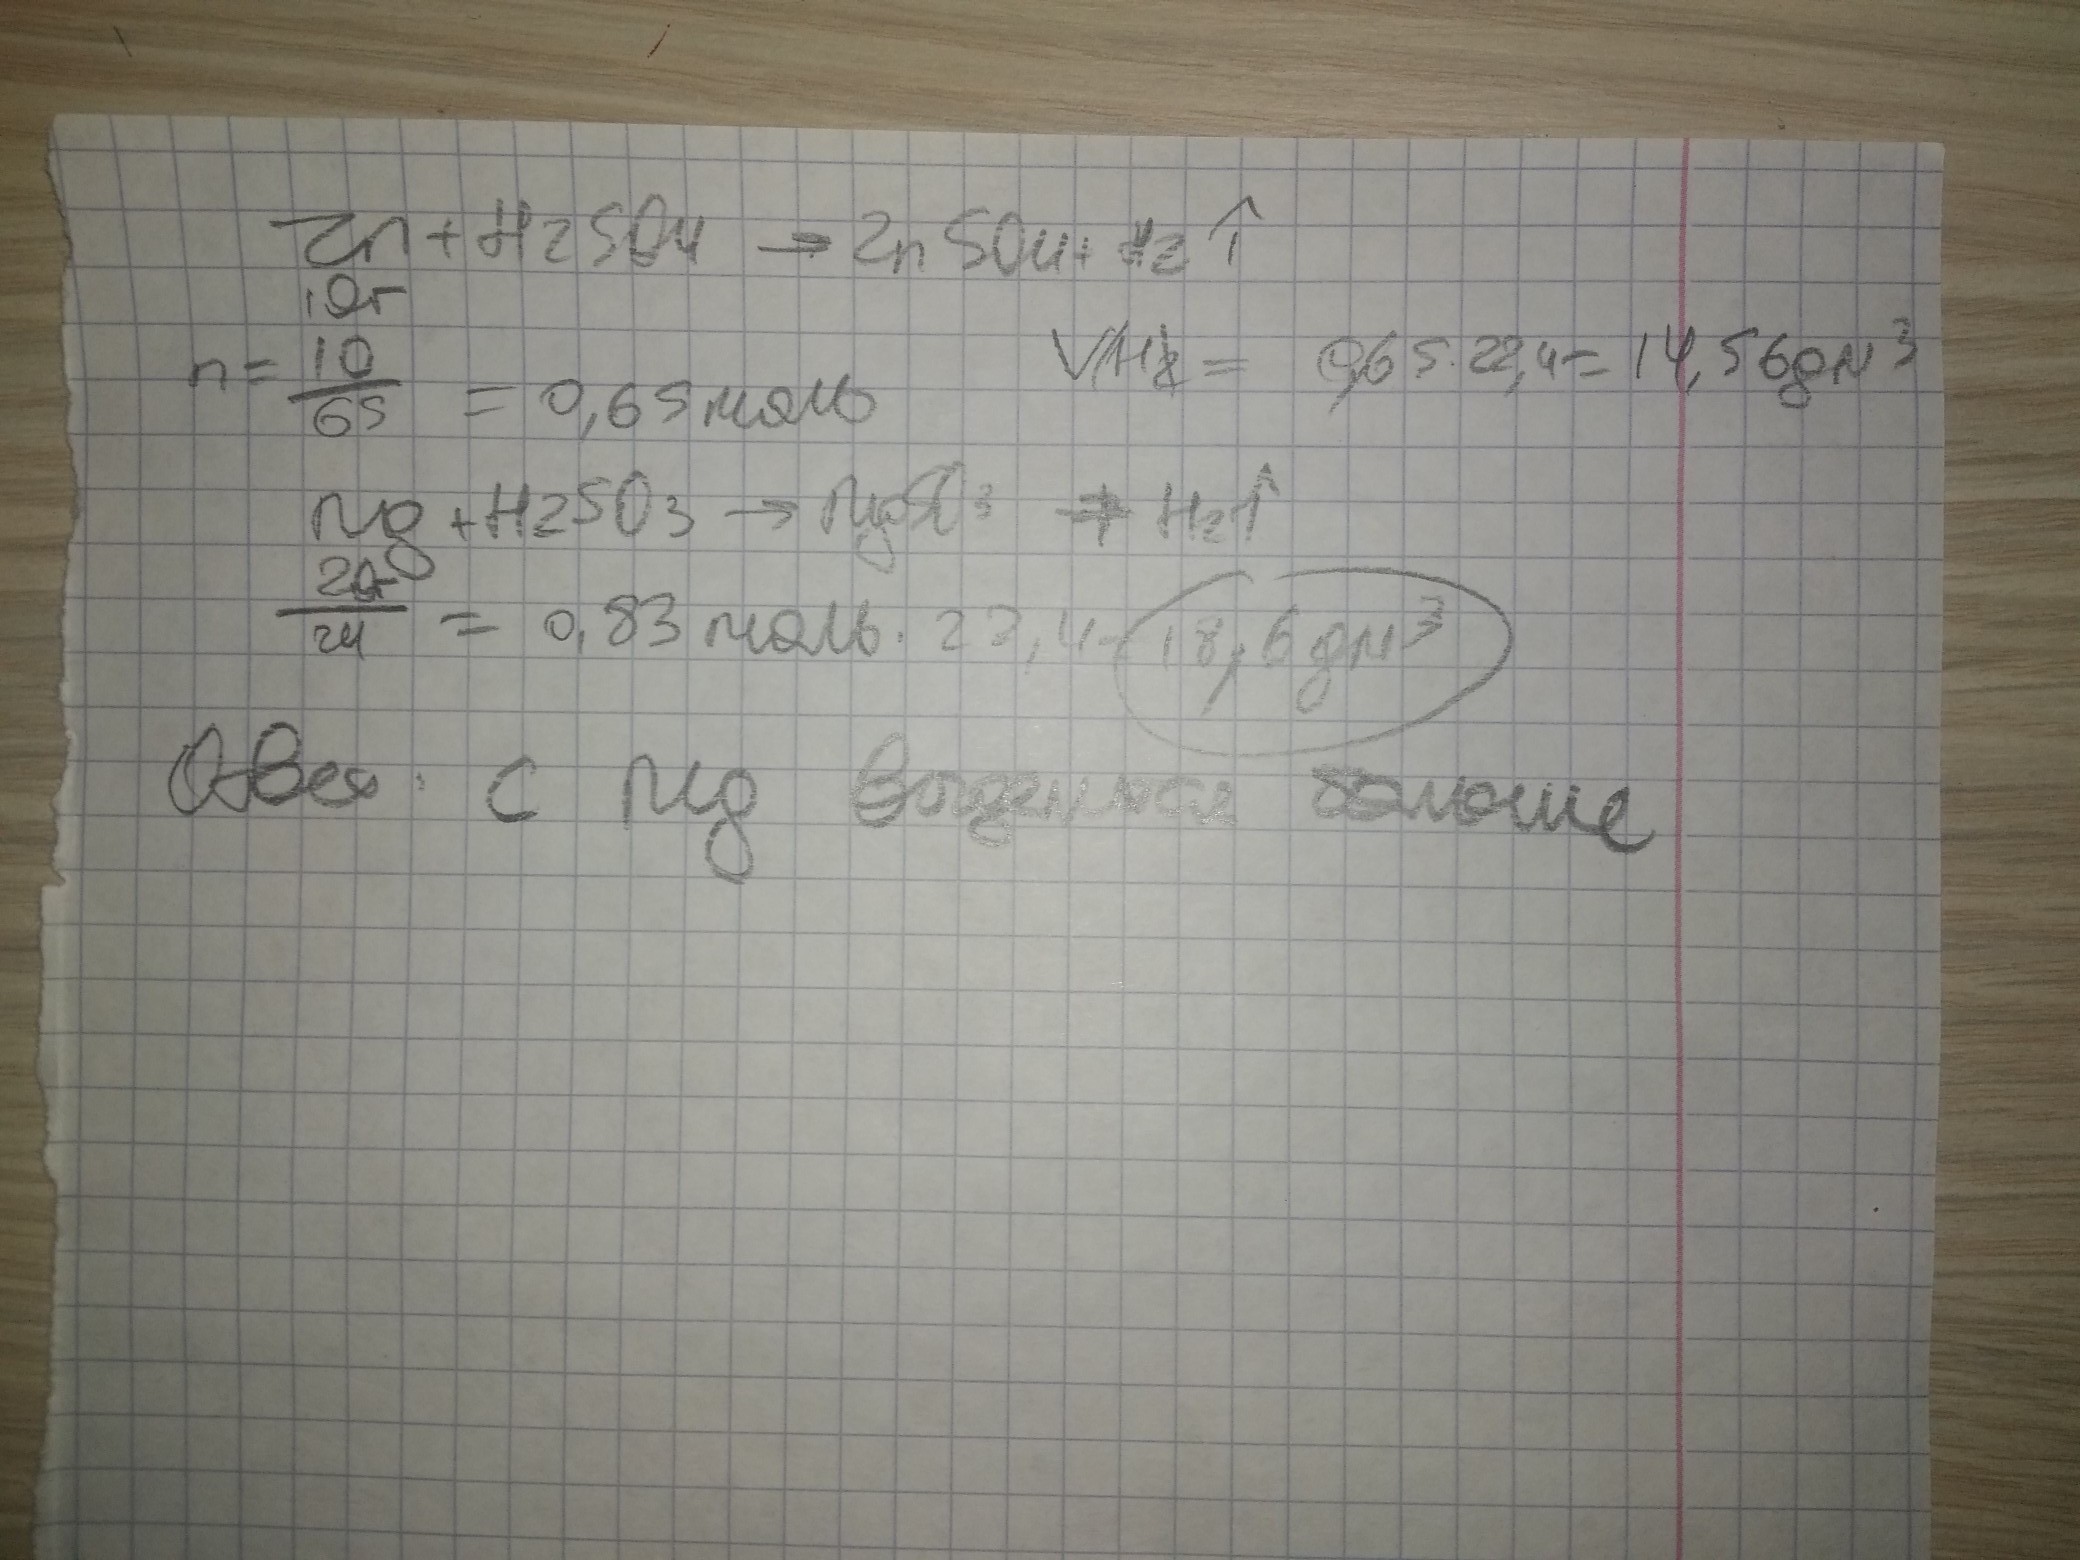 Zn + H2SO4 → ZnSO4 + H2↑
10г
n = 10/65 = 0,65 моль V(H2) = 0,65 · 22,4 = 14,56 дм³
Mg + H2SO3 → MgSO3 + H2↑
20г/24 = 0,83 моль · 22,4 = 18,6 дм³
Ответ: с Mg